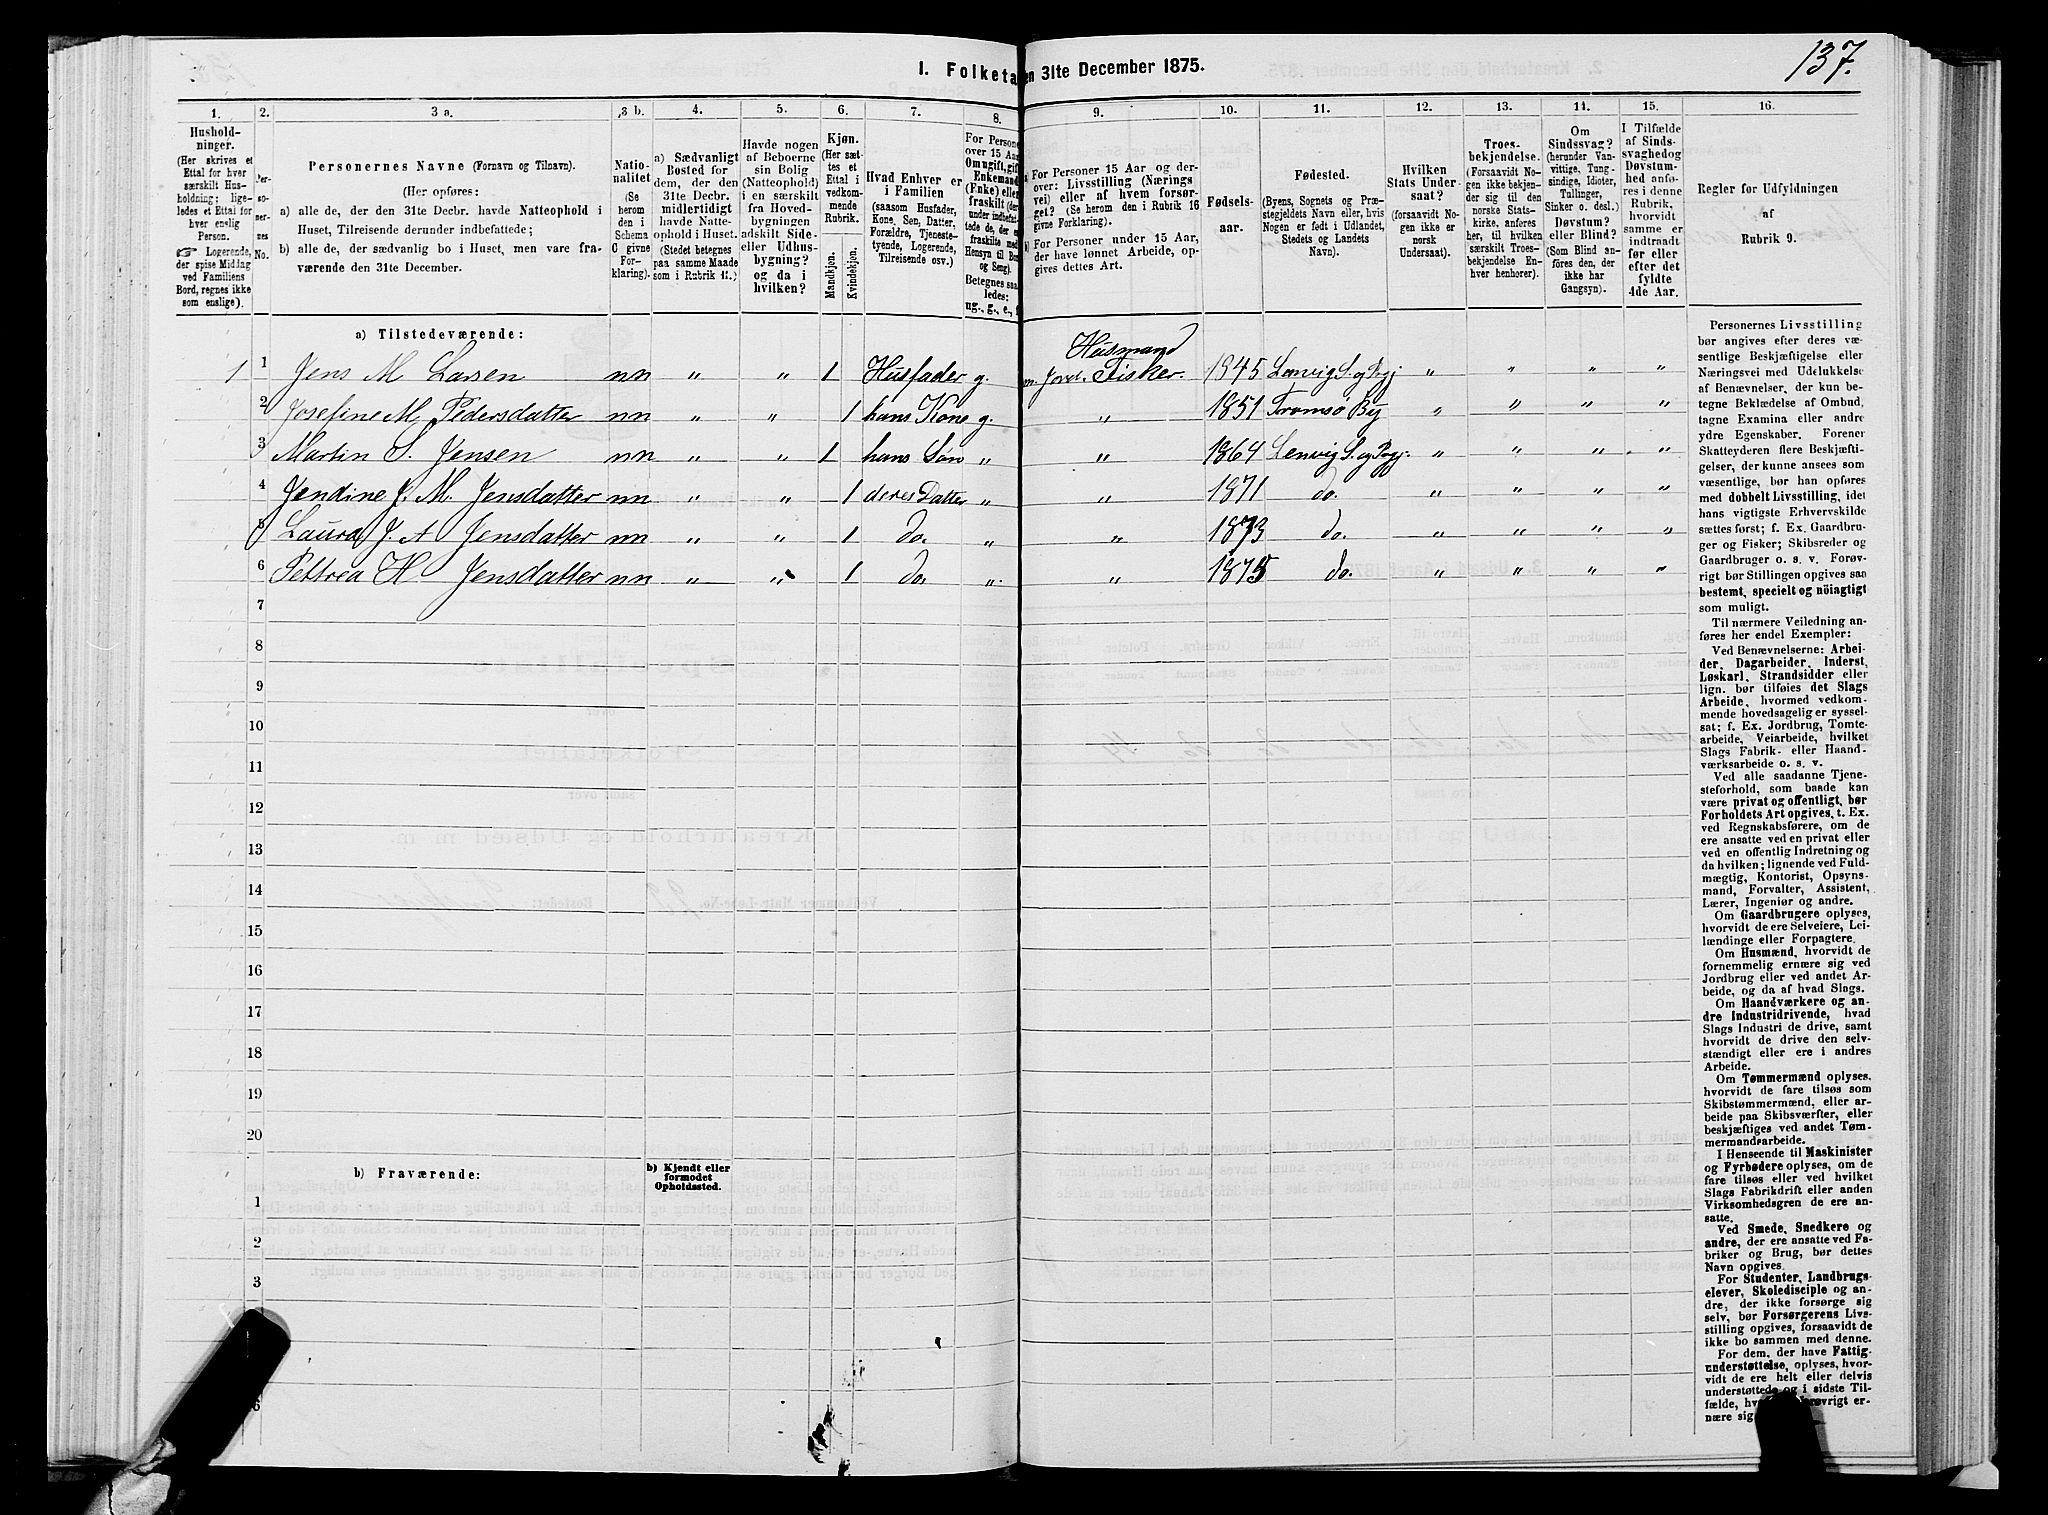 137.
I. Folketa en 31te December 1875.
1. 2. 3 a. 3 b. 4. 5. 6. 7. 8. 9. 10. 11. 12. 13. 14. 15. 16.
Hushold-
ninger.
(Her skrives et
Ettal for hver
særskilt Hus-
holdning; lige-
ledes et Ettal for
hver enslig
Person.
☞ Logerende,
der spise Middag
ved Familiens
Bord, regnes ikke
som enslige).
Per-
so-
ner-
nes
No.
Personernes Navne (Fornavn og Tilnavn).
(Her opføres:
a) alle de, der den 31te Decbr. havde Natteophold i
Huset, Tilreisende derunder indbefattede;
b) alle de, der sædvanlig bo i Huset, men vare fra-
værende den 31te December.
Natio-
nalitet
(Se
herom
den i
Schema
C givne
For-
klaring).
a) Sædvanligt
Bosted for
dem, der den
31te Decbr.
midlertidigt
havde Natte-
ophold i Huset.
(Stedet betegnes
paa samme Maade
som i Rubrik 11.)
Havde nogen
af Beboerne
sin Bolig
(Natteophold)
i en særskilt
fra Hoved-
bygningen
adskilt Side-
eller Udhus-
bygning?
og da i
hvilken?
Kjøn.
(Her sæt-
tes et
Ettal i
vedkom-
mende
Rubrik.
Mandkjøn.
Kvindekjøn.
Hvad Enhver er
i Familien
(saasom Husfader,
Kone, Søn, Datter,
Forældre, Tjeneste-
tyende, Logerende,
Tilreisende osv.)
For Personer
over 15 Aar
Om ugift, gift,
Enkemand
(Enke) eller
fraskilt (der-
under indbefat-
tede de, der ere
fraskilte med
Hensyn til Bord
og Seng).
Betegnes saa-
ledes:
ug., g., e., f.
a) For Personer 15 Aar og der-
over: Livsstilling (Nærings-
vei) eller af hvem forsør-
get? (Se herom den i Rubrik 16
givne Forklaring).
b) For Personer under 15 Aar,
der have lønnet Arbeide, op-
gives dettes Art.
Fødsels-
aar.
Fødested.
(Byens, Sognets og Præ-
stegjeldets Navn eller, hvis
Nogen er født i Udlandet,
Stedets og Landets
Navn).
Hvilken
Stats Under-
saat?
(forsaavidt No-
gen ikke er
norsk
Undersaat).
Troes-
bekjendelse.
(Forsaavidt No-
gen ikke bekjen-
der sig til den
norske Stats-
kirke, anføres
her, til hvilken
særskilt Troes-
bekjendelse En-
hver henhorer).
Om
Sindssvag?
(herunder Van-
vittige, Tung-
sindige, Idioter,
Tullinger,
Sinker o. desl.)
Døvstum?
eller Blind?
(Som Blind an-
føres den, der
ikke har
Gangsyn).
I Tilfælde
af Sinds-
svaghed og
Døvstum-
hed anfø-
res i denne
Rubrik,
hvorvidt
samme er
indtraadt
før eller
efter det
fyldte
4de Aar.
Regler for Udfyldningen
af
Rubrik 9.
a) Tilstedeværende:
1 1 Jens M Larsen nn „ „ 1 Husfader g. Husmand m. Jord. Fisker. 1845 Lenvig S. og Pgj „ „ „ „
2 Josefine M. Pedersdatter nn „ „ 1 hans Kone g. „ 1851 Tromsø By „ „ „ „
3 Martin S. Jensen nn „ „ 1 hans Søn „ „ 1864 Lenvig S. og Pgj. „ „ „ „
4 Jendine J. M. Jensdatter nn „ „ 1 deres Datter „ „ 1871 do. „ „ „ „
5 Laura J. A Jensdatter nn „ „ 1 do. „ „ 1873 do. „ „ „ „
6 Pettrea H Jensdatter nn „ „ 1 do. „ „ 1875 do. „ „ „ „
7
8
9
10
11
12
13
14
15
16
17
18
19
20
b) Fraværende:
b) Kjendt eller
formodet
Opholdssted.
1
2
3
6
Personernes Livsstilling
bør angives efter deres væ-
sentlige Beskjæftigelse eller
Næringsvei med Udelukkelse
af Benævnelser, der kun be-
tegne Beklædelse af Ombud,
tagne Examina eller andre
ydre Egenskaber. Forener
Skatteyderen flere Beskjæfti-
gelser, der kunne ansees som
væsentlige, bør han opføres
med dobbelt Livsstilling, idet
hans vigtigste Erhvervskilde
sættes først; f. Ex. Gaardbru-
ger og Fisker; Skibsreder og
Gaardbruger o. s. v. Forøv-
rigt bør Stillingen opgives saa
bestemt, specielt og nöiagtigt
som muligt.
Til nærmere Veiledning an-
føres her endel Exempler:
Ved Benævnelserne: Arbei-
der, Dagarbeider, Inderst,
Løskarl, Strandsidder eller
lign. bør tilføies det Slags
Arbeide, hvormed vedkom-
mende hovedsagelig er syssel-
sat; f. Ex. Jordbrug, Tomte-
arbeide, Veiarbeide, hvilket
Slags Fabrik- eller Haand-
værksarbeide o. s. v.
Ved alle saadanne Tjene-
steforhold, som baade kan
være privat og offentligt, bør
Forholdets Art opgives, t. Ex.
ved Regnskabsførere, om de
ere ansatte ved en privat eller
ved en offentlig Indretning og
da hvilken; lignende ved Fuld-
mægtig, Kontorist, Opsyns-
mand, Forvalter, Assistent,
Lærer, Ingeniør og andre.
Om Gaardbrugere oplyses,
hvorvidt de ere Selveiere, Lei-
lændinge eller Forpagtere.
Om Husmænd, hvorvidt de
fornemmelig ernære sig ved
Jordbrug eller ved andet Ar-
beide, og da af hvad Slags.
Om Haandværkere og an-
dre Industridrivende, hvad
Slags Industri de drive, samt
hvorvidt de drive den selv-
stændigt eller ere i andres
Arbeide.
Om Tømmermænd oplyses,
hvorvidt de fare tilsøs som
Skibstømmermænd, eller ar-
beide paa Skibsværfter, eller
beskjæftiges ved andet Tøm-
mermandsarbeide.
I Henseende til Maskinister
og Fyrbødere oplyses, om de
fare tilsøs eller ved hvilket
Slags Fabrikdrift eller anden
Virksomhedsgren de ere an-
satte.
Ved Smede, Snedkere og
andre, der ere ansatte ved Fa-
briker og Brug, bør dettes
Navn opgives.
For Studenter, Landbrugs-
elever, Skoledisciple og an-
dre, der ikke forsørge sig
selv, bør Forsørgerens Livs-
stilling opgives, forsaavidt de
ikke bo sammen med denne.
For dem, der have Fattig-
understøttelse, oplyses, hvor-
vidt de ere helt eller delvis
understøttede og i sidste Til-
fælde, hv røvrigt er-
nære sig